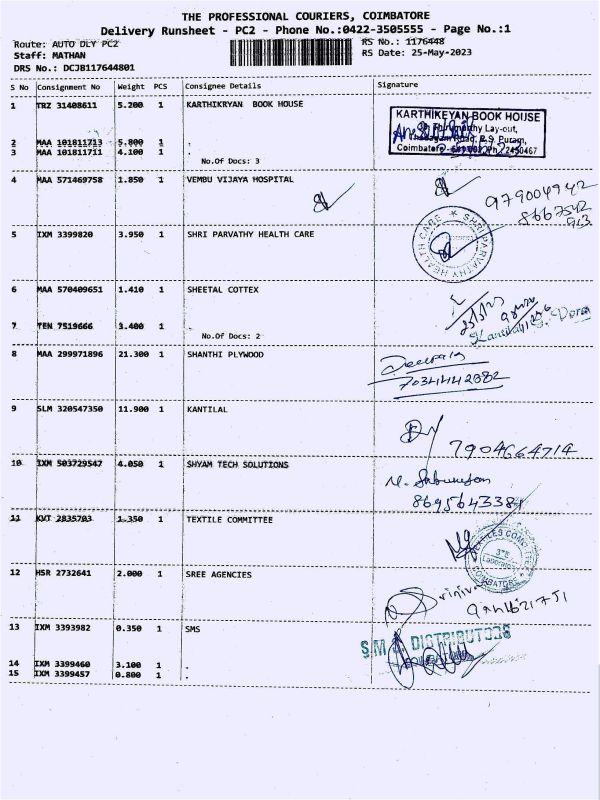 THE PROFESSIONAL COURIERS, COIMBATORE
Delivery Runsheet - PC2 - Phone No.:0422-3505555 - Page No.:1
Route: AUTO DLY PC2 RS No.: 1176448
Staff: MATHAN RS Date: 25-May-2023
DRS No.: DCJB117644801
S No Consignment No Weight PCS Consignee Details Signature
1 TRZ 31408611 5.200 1 KARTHIKRYAN BOOK HOUSE
KARTHIKEYAN BOOK HOUSE
Lay-out,
R.S. Puram,
Coimbatore Ph: 2450467
2 MAA 101811713 5.800 1 .
3 MAA 101811711 4.100 1 .
No.Of Docs: 3
4 MAA 571469758 1.850 1 VEMBU VIJAYA HOSPITAL
5 IXM 3399820 3.950 1 SHRI PARVATHY HEALTH CARE
SHRI PARVATHY HEALTH CARE
6 MAA 570409651 1.410 1 SHEETAL COTTEX
7 TEN 7519666 3.400 1 .
No.Of Docs: 2
8 MAA 299971896 21.300 1 SHANTHI PLYWOOD
7034442882
9 SLM 320547350 11.900 1 KANTILAL
7904664714
10 IXM 503729547 4.050 1 SHYAM TECH SOLUTIONS
11 KVT 2835703 1.350 1 TEXTILE COMMITTEE
COIMBATORE
12 HSR 2732641 2.000 1 SREE AGENCIES
13 IXM 3393982 0.350 1 SMS
S.M. DISTRIBUTORS
14 IXM 3399460 3.100 1 .
15 IXM 3399457 0.800 1 .